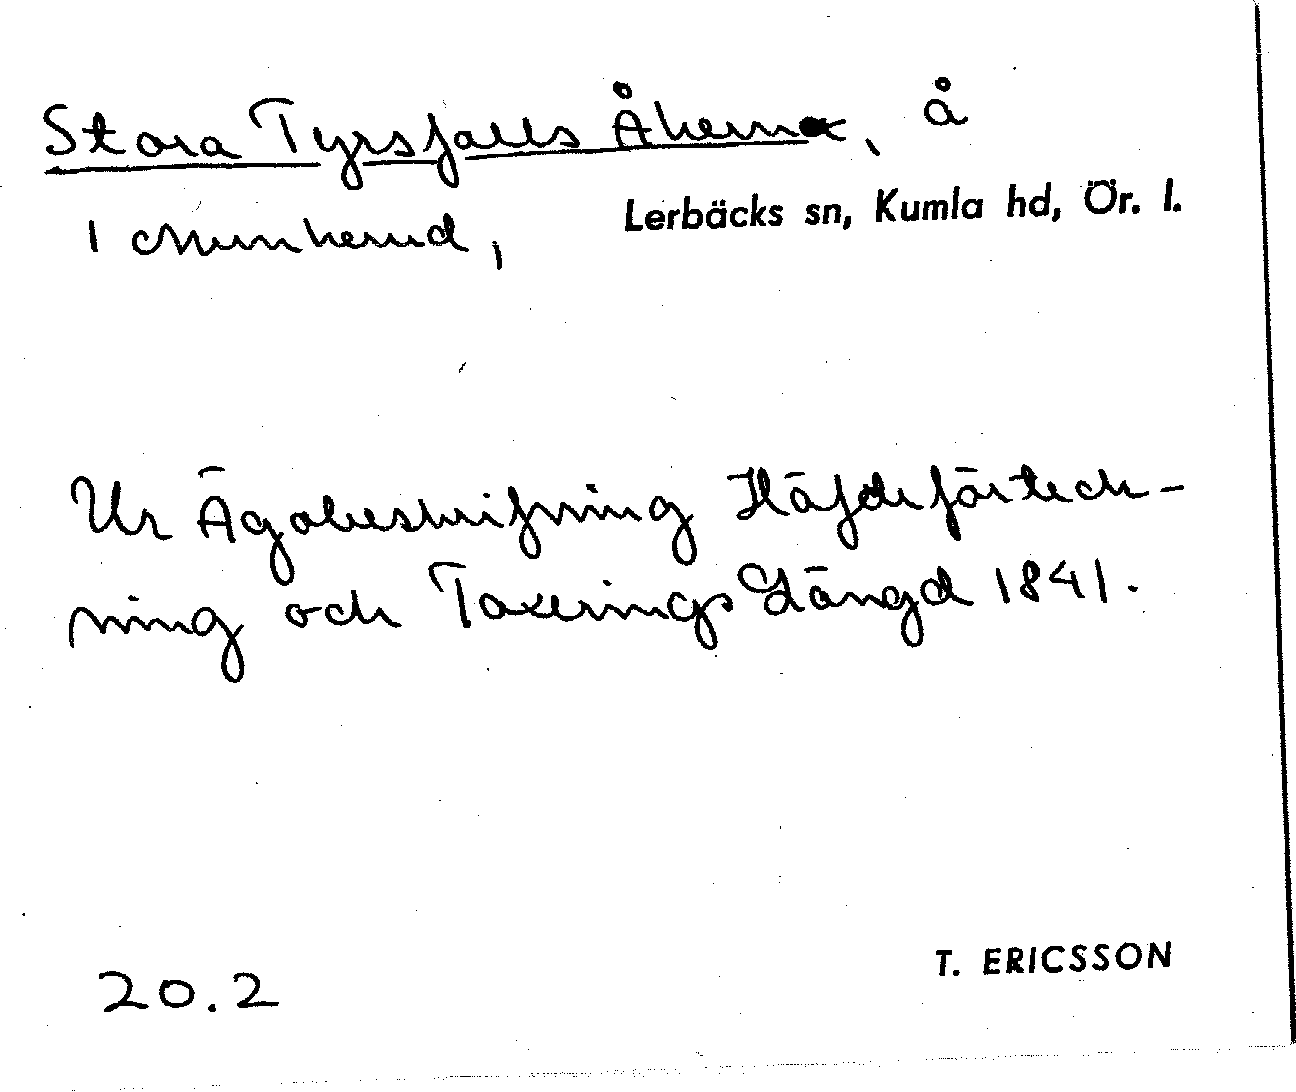 Stora Tyrsfalls Åkerna, å
1 Munkerud,
Lerbäcks sn, Kumla hd, Ör. l.
Ur Ägobeskrifning Häfdeförteck-
ning och Taxerings Längd 1841.
20.2
T. ERICSSON